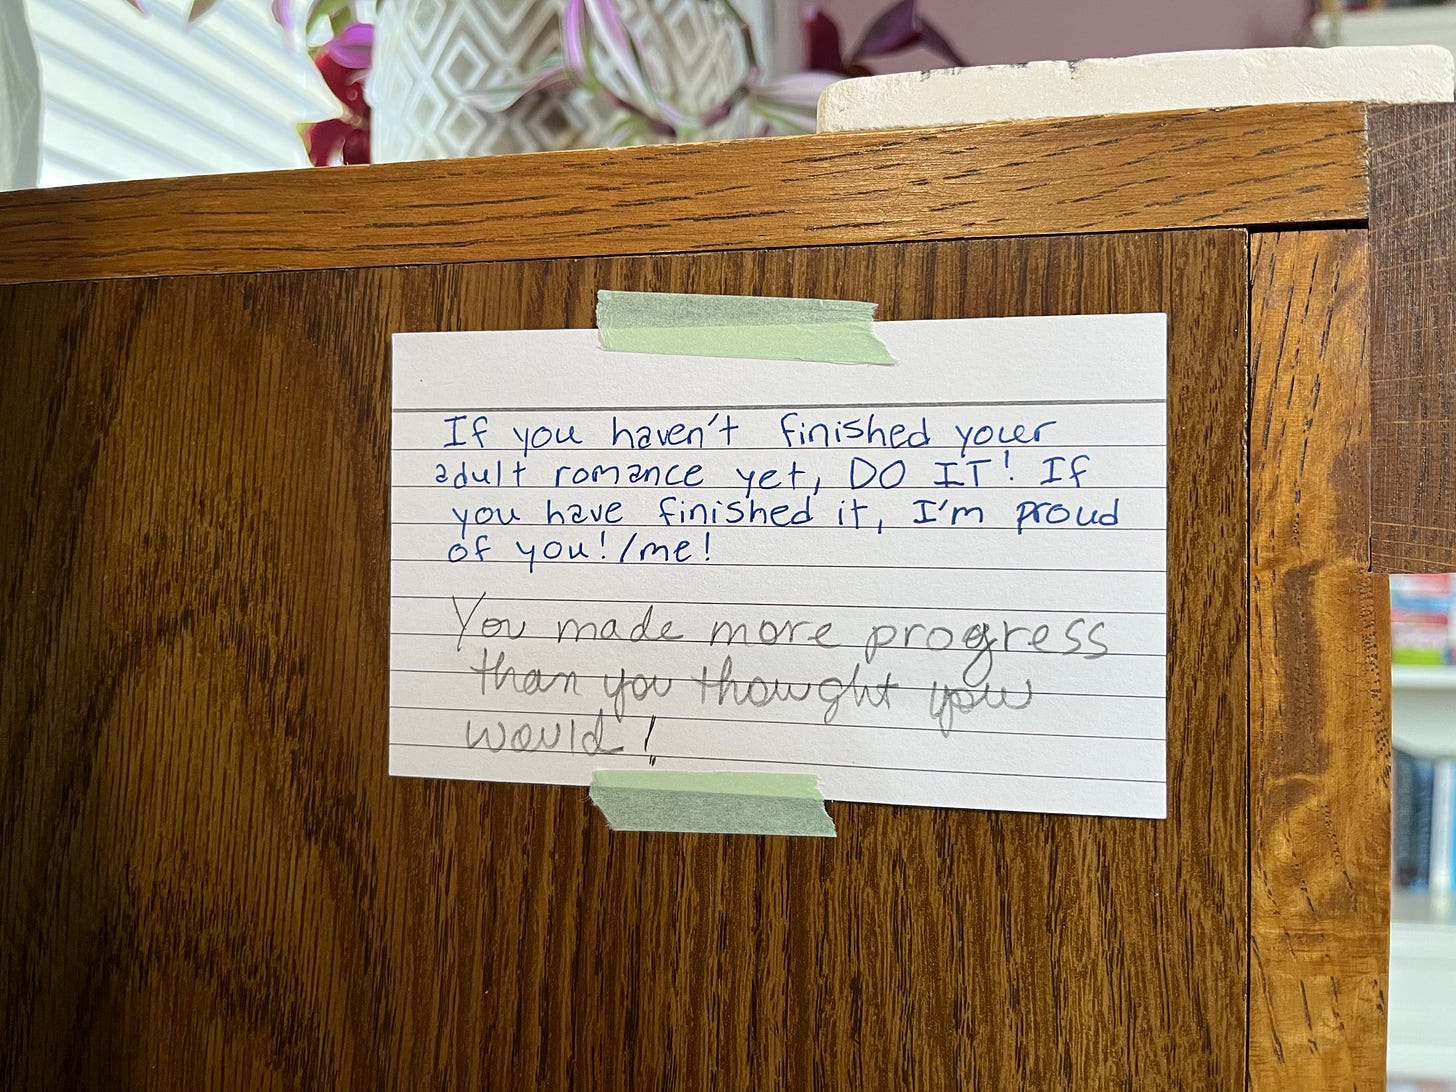 If you haven't finished your
adult romance yet, DO IT! If
you have finished it, I'm proud
of you!/me!
You made more progress
than you thought you
would!